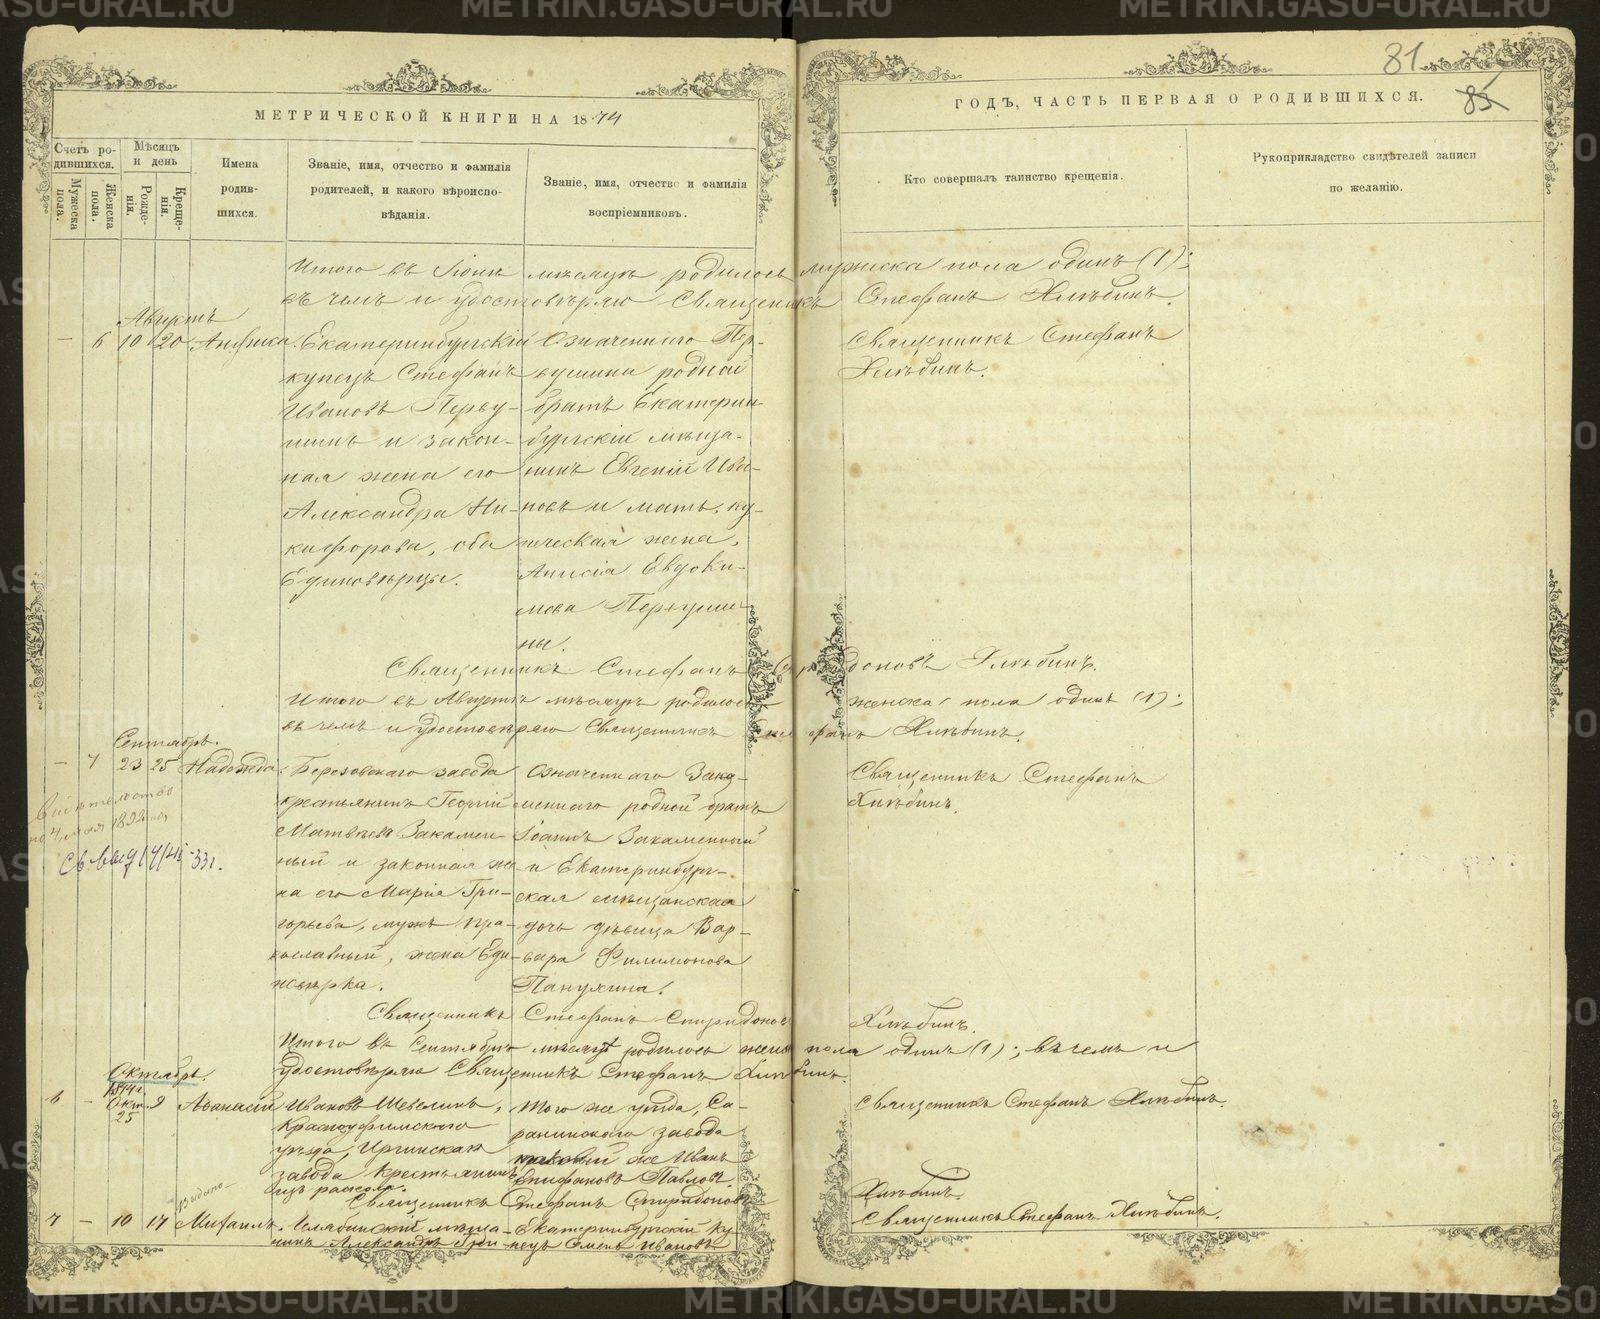 81
85
МЕТРИЧЕСКОЙ КНИГИ НА 1874
ГОДЪ, ЧАСТЬ ПЕРВАЯ О РОДИВШИХСЯ.
Счетъ ро-
дившихся.
Мужеска
пола.
Женска
пола.
Мѣсяцъ
и день
Рожде-
нія.
Креще-
нія.
Имена
родив-
шихся.
Званіе, имя, отчество и фамилія
родителей, и какого вѣроиспо-
вѣданія.
Званіе, имя, отчество и фамилія
воспріемниковъ.
Кто совершалъ таинство крещенія.
Рукоприкладство свидѣтелей записи
по желанію.
Итого въ Іюнѣ мѣсяцѣ родилось мужеска пола одинъ (1);
въ чемъ и удостовѣряю Священникъ Стефанъ Хлѣбинъ.
Августъ
— 6 10 20 Анфиса.
Екатеринбургскій
купецъ Стефанъ
Ивановъ Перву-
шинъ и закон-
ная жена его
Александра Ни-
кифорова, оба
Единовѣрцы.
Означеннаго Пер-
вушина родной
братъ Екатерин-
бургскій мѣща-
нинъ Евгеній Ива-
новъ и мать, ку-
печеская жена,
Анисія Евдоки-
мова Первуши-
ны.
Священникъ Стефанъ
Хлѣбинъ.
Священникъ Стефанъ Спиридоновъ Хлѣбинъ.
Итого въ Августѣ мѣсяцѣ родилось женска пола одинъ (1);
въ чемъ и удостовѣряю Священникъ Стефанъ Хлѣбинъ.
Сентябрь.
— 7 23 25 Надежда.
Березовскаго завода
крестьянинъ Георгій
Матвѣевъ Закамен-
ный и законная же-
на его Марія Гри-
горьева, мужъ пра-
вославный, жена Еди-
новѣрка.
Означеннаго Зака-
меннаго родной братъ
Іоаннъ Закаменный
и Екатеринбург-
ская мѣщанская
дочь дѣвица Вар-
вара Филимонова
Панухина.
Священникъ Стефанъ
Хлѣбинъ.
Священникъ Стефанъ Спиридоновъ Хлѣбинъ.
Итого въ Сентябрѣ мѣсяцѣ родилось женск пола одинъ (1); въ чемъ и
удостовѣряю Священникъ Стефанъ Хлѣбинъ.
Октябрь.
6 — Окт. 25 9 Аѳанасій
Ивановъ Шевелинъ,
Красноуфимского
уѣзда, Иргинская
завода крестьянинъ
изъ раскола.
того же уѣзда, Са-
ранинского завода
таковый же Иванъ
Епифановъ Павловъ.
Священникъ Стефанъ Хлѣбинъ.
Священникъ Стефанъ Спиридоновъ Хлѣбинъ.
7 — 10 17 Михаилъ.
Челябинскій мѣща-
нинъ Александръ Гри-
Екатеринбургскій ку-
пецъ Семенъ Ивановъ
Священникъ Стефанъ Хлѣбинъ.
METRIKI.GASO-URAL.RU